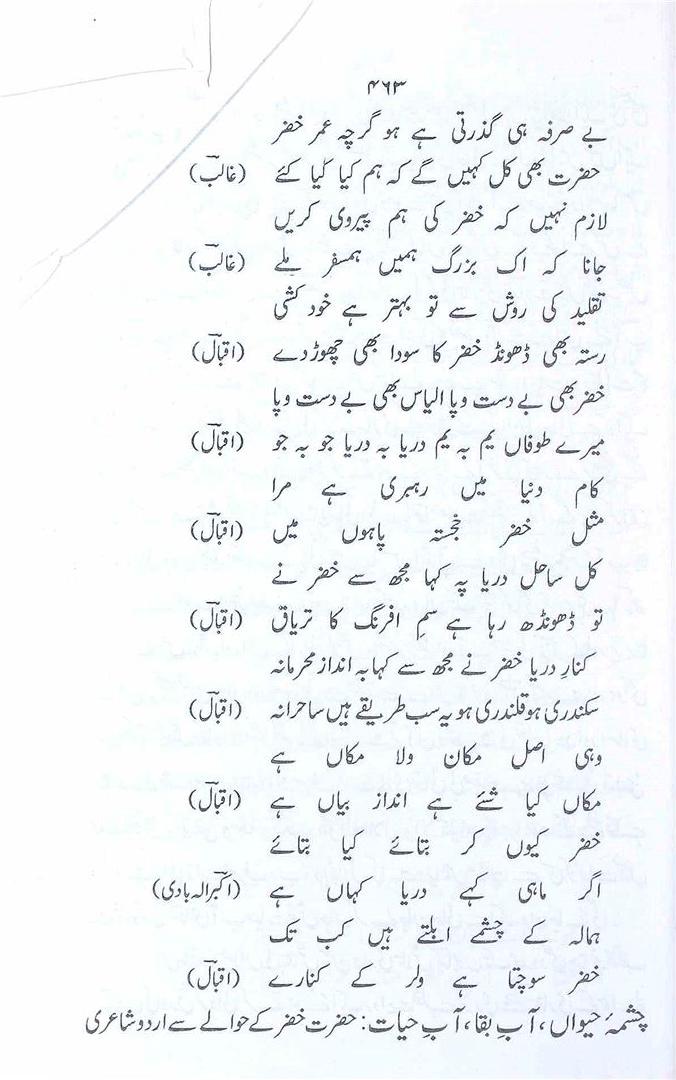 ۴۶۳
بے صرفہ ہی گذرتی ہے ہو گرچہ عمر خضر
حضرت بھی کل کہیں گے کہ ہم کیا کیا کئے (غالبؔ)
لازم نہیں کہ خضر کی ہم پیروی کریں
جانا کہ اک بزرگ ہمیں ہمسفر ملے (غالبؔ)
تقلید کی روش سے تو بہتر ہے خود کشی
رستہ بھی ڈھونڈ خضر کا سودا بھی چھوڑ دے (اقبالؔ)
خضر بھی بے دست وپا الیاس بھی بے دست وپا
میرے طوفاں یم بہ یم دریا بہ دریا جو بہ جو (اقبالؔ)
کام دنیا میں رہبری ہے مرا
مثل خضر خجستہ پاہوں میں (اقبالؔ)
کل ساحل دریا پہ کہا مجھ سے خضر نے
تو ڈھونڈھ رہا ہے سمِ افرنگ کا تریاق (اقبالؔ)
کنارِ دریا خضر نے مجھ سے کہا بہ انداز محرمانہ
سکندری ہو قلندری ہو یہ سب طریقے ہیں ساحرانہ (اقبالؔ)
وہی اصل مکان ولا مکاں ہے
مکاں کیا شئے ہے انداز بیاں ہے (اقبالؔ)
خضر کیوں کر بتائے کیا بتائے
اگر ماہی کہے دریا کہاں ہے (اکبرؔالہ بادی)
ہمالہ کے چشمے ابلتے ہیں کب تک
خضر سوچتا ہے ولر کے کنارے (اقبالؔ)
چشمۂ حیواں، آبِ بقا، آبِ حیات: حضرت خضر کے حوالے سے اردو شاعری